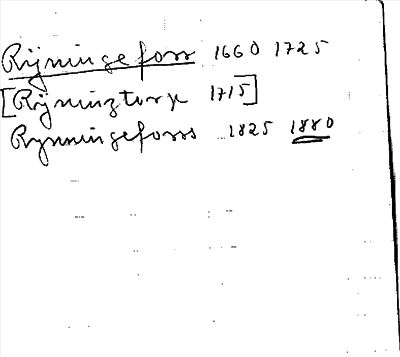 Rÿningefors 1660 1725
[Rÿningztorp 1715]
Rynningefors 1825 1880